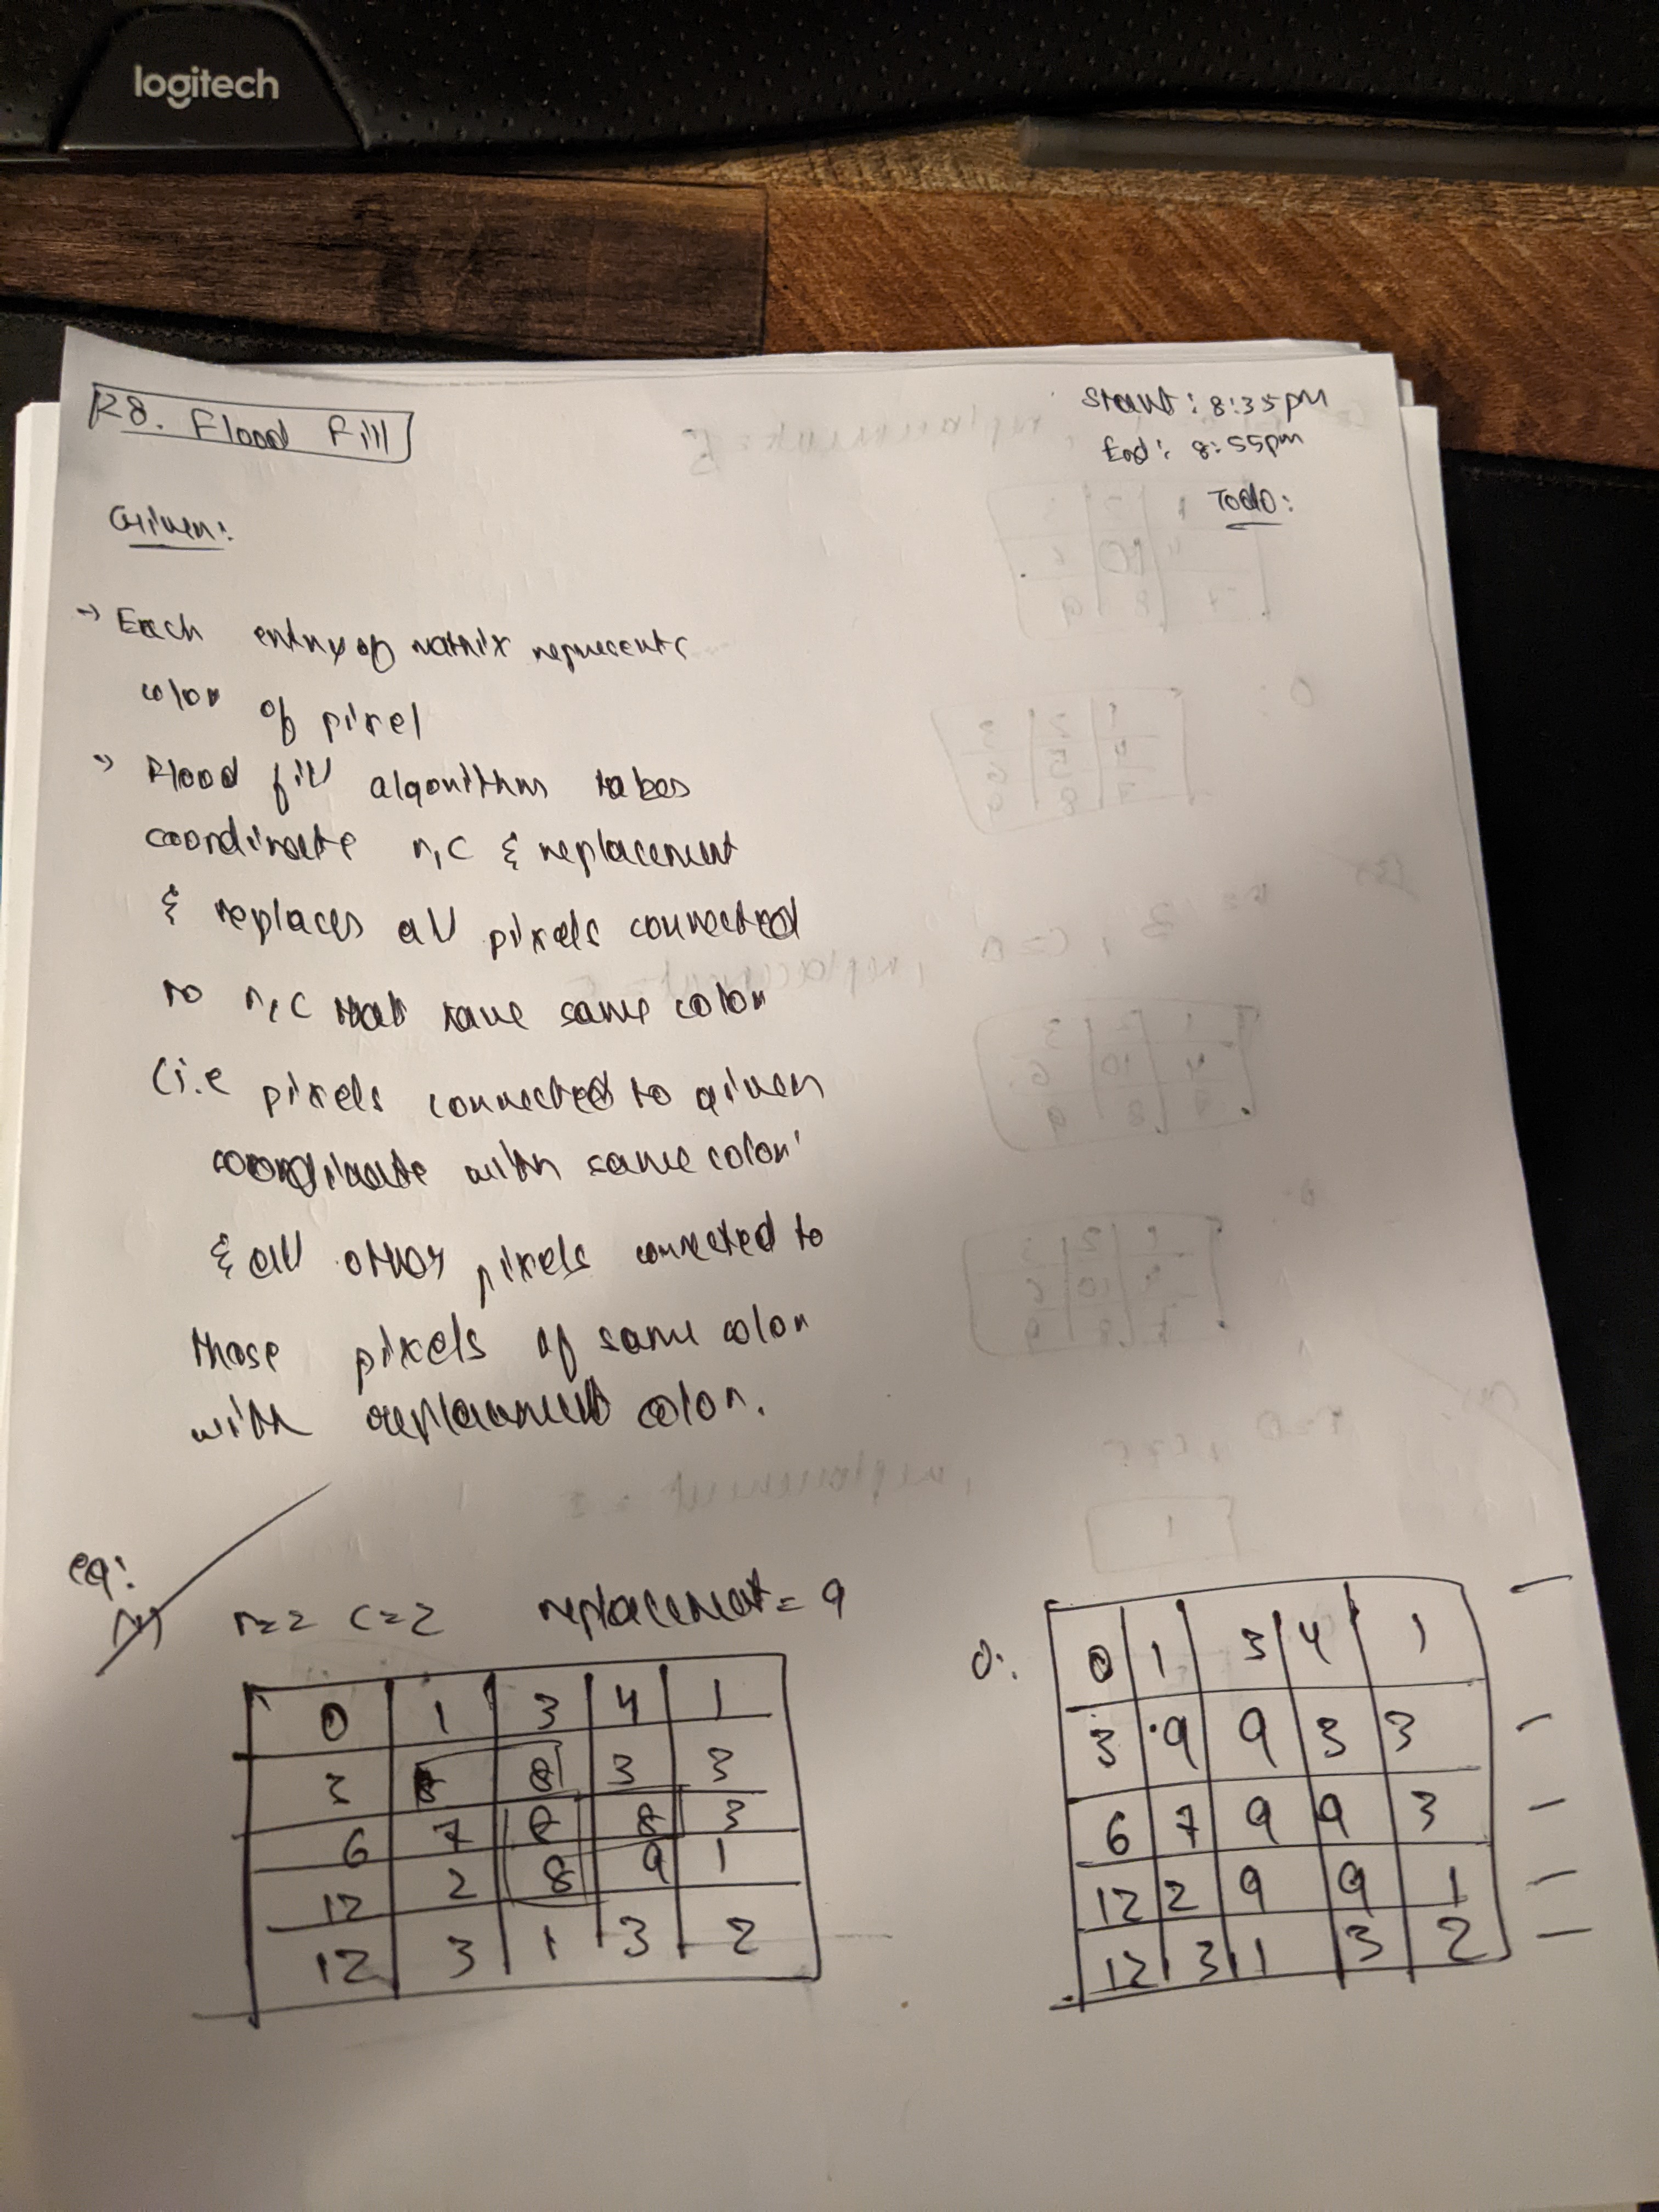 logitech
R8. Flood Fill
Start: 8:35pm
End: 8:55pm
Todo:
Given:
→ Each entry of matrix represents
color of pixel
→ Flood fill algorithm takes
coordinate r,c & replacement
& replaces all pixels connected
to r,c that have same color
(i.e pixels connected to given
coordinate with same color
& all other pixels connected to
those pixels of same color
with replacement color.
eg:
r=2 c=2 replacement = 9
0 1 3 4 1
3 8 8 3 3
6 7 8 8 3
12 2 8 9 1
12 3 1 3 2
O:
0 1 3 4 1
3 9 9 3 3
6 7 9 9 3
12 2 9 9 1
12 3 1 3 2